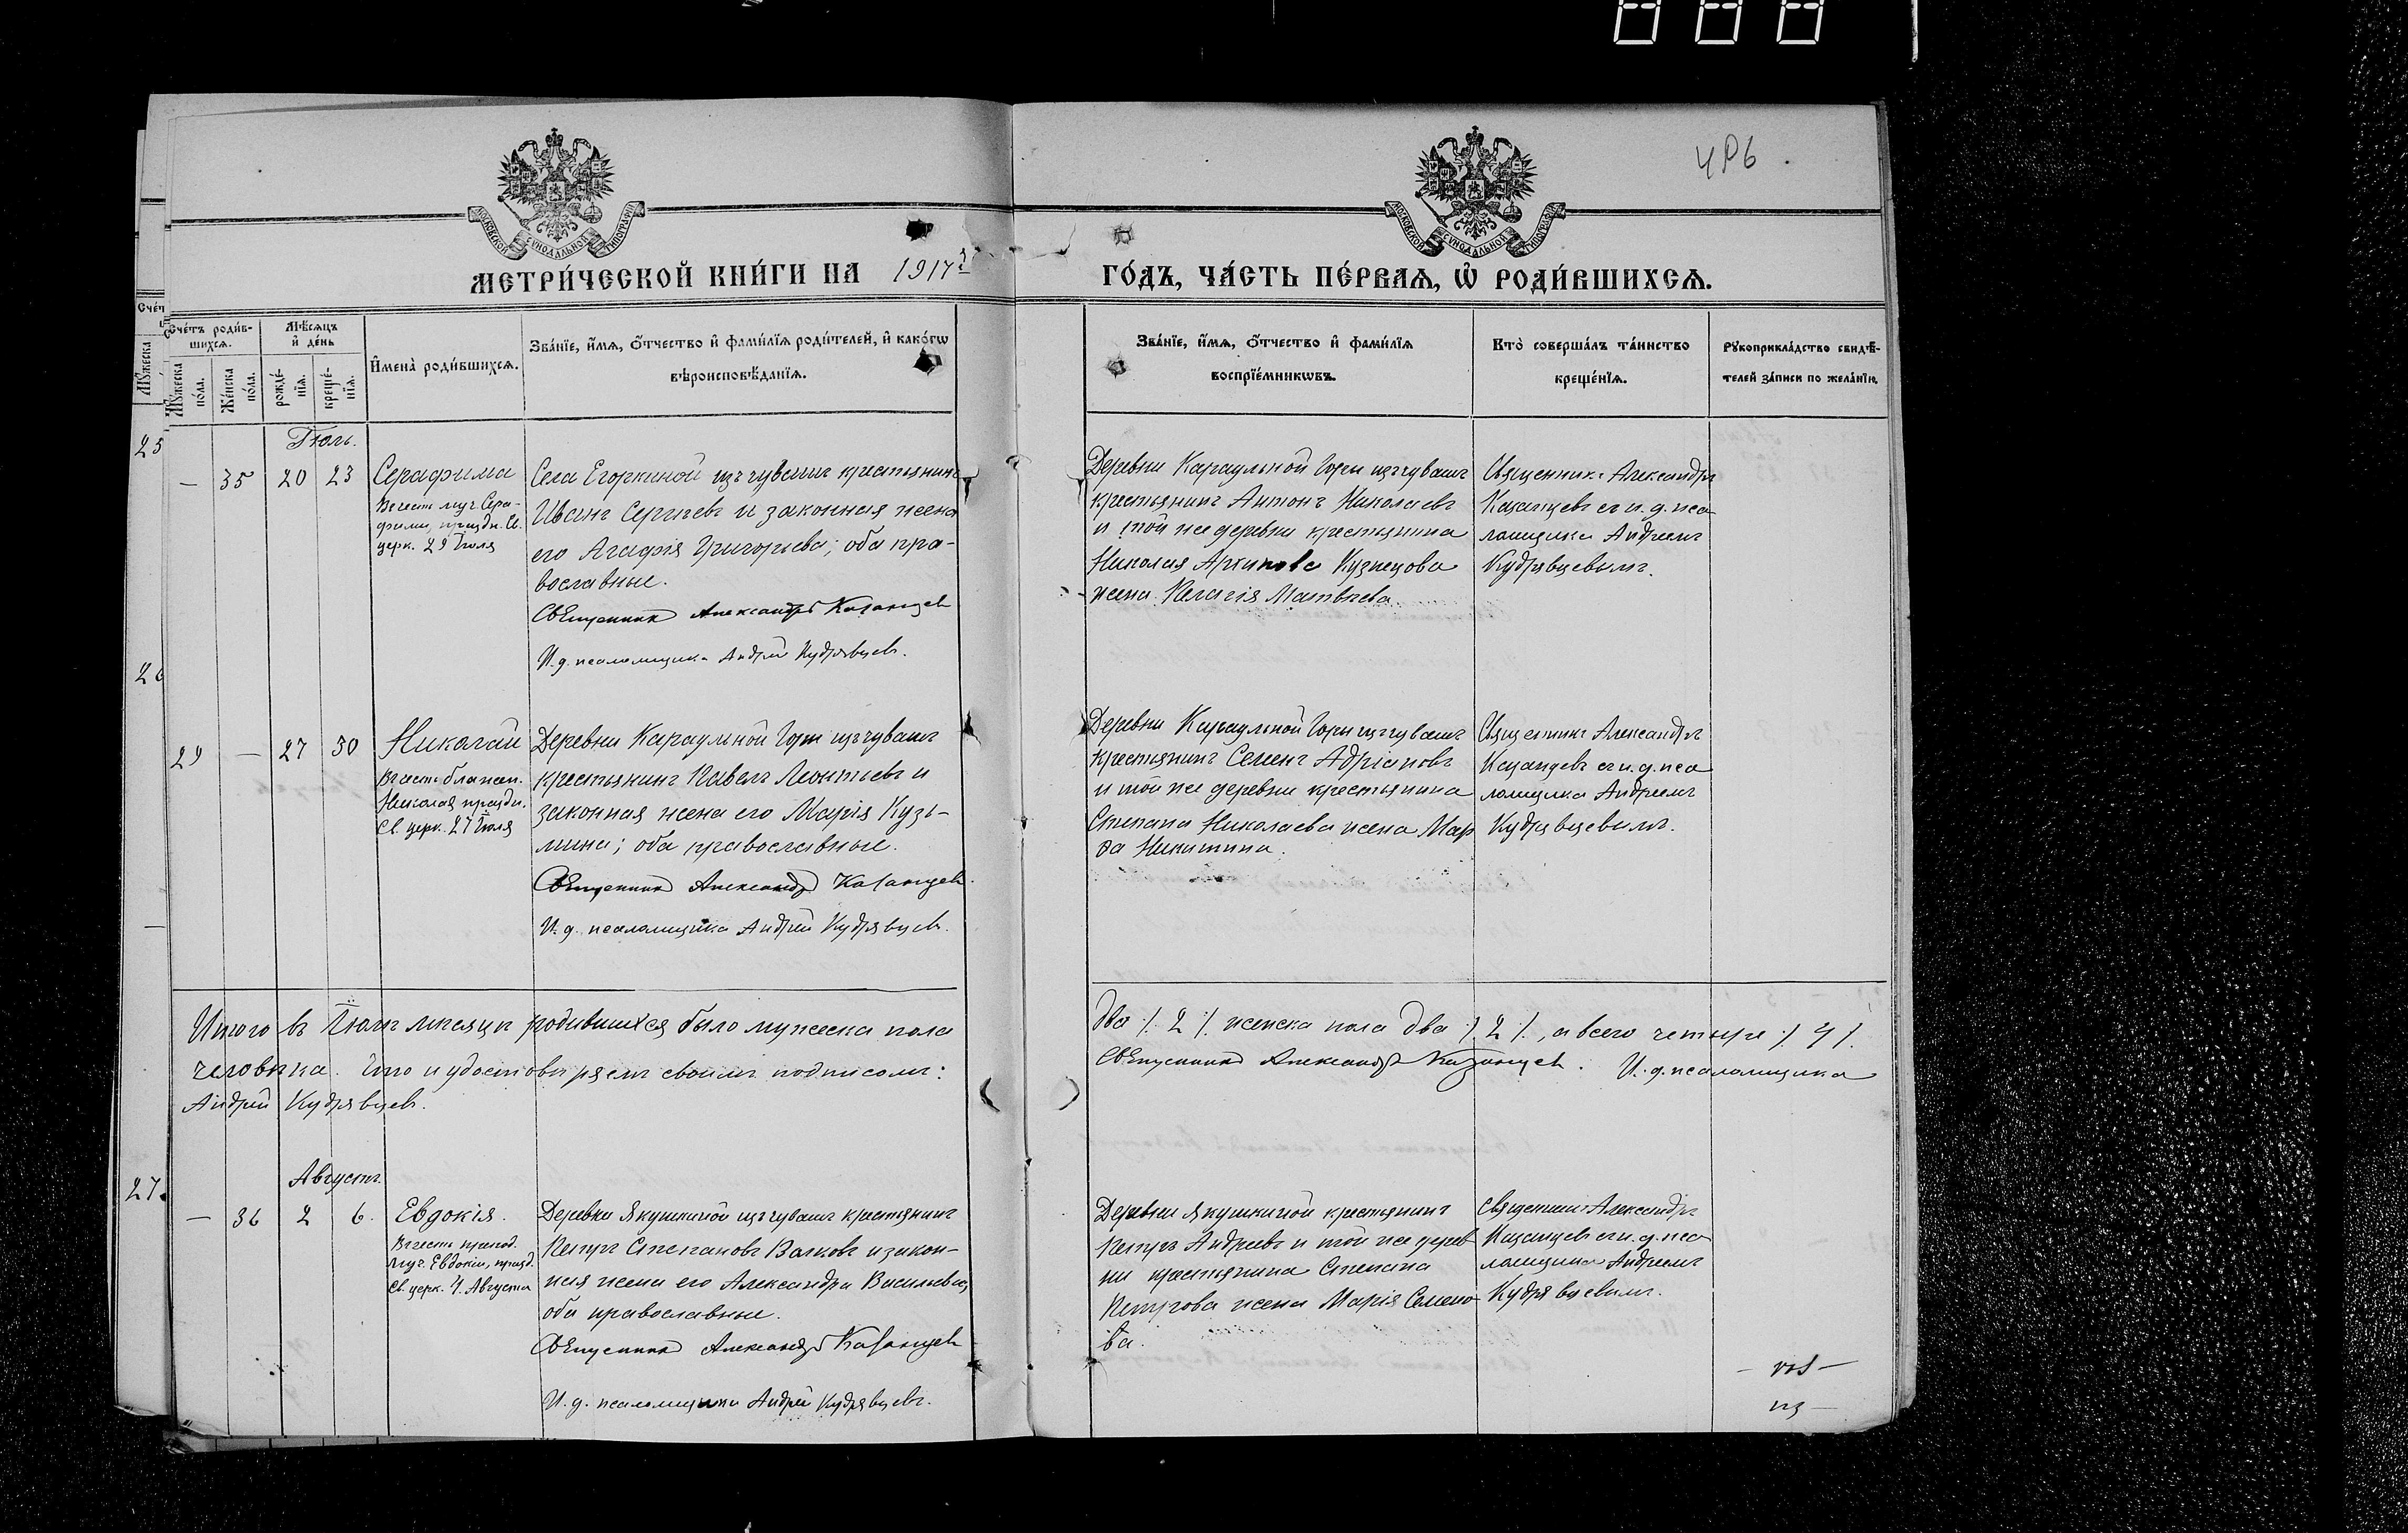 486
МОСКОВСКОЙ СУНОДАЛЬНОЙ ТИПОГРАФИИ
МОСКОВСКОЙ СУНОДАЛЬНОЙ ТИПОГРАФИИ
МЕТРИ́ЧЕСКОЙ КНИ́ГИ НА 1917 ГО́ДЪ, ЧА́СТЬ ПЕ́РВАѦ, Ѽ РОДИ́ВШИХСѦ.
Сче́тъ роди́в-
шихсѧ.
Мꙋ́жеска по́ла.
Же́нска по́ла.
Мѣ́сѧцъ
и҆ де́нь
рожде́-
нїѧ.
креще́-
нїѧ.
И҆мена̀ роди́вшихсѧ.
Зва́нїе, и҆́мѧ, ѻ҆́тчество и҆ фами́лїѧ роди́телей, и҆ како́гѡ
вѣроисповѣ́данїѧ.
Зва́нїе, и҆́мѧ, ѻ҆́тчество и҆ фами́лїѧ
воспрїе́мникѡвъ.
Кто̀ соверша́лъ та́инство
креще́нїѧ.
Рꙋкоприкла́дство свидѣ́-
телей за́писи по жела́нїю.
25
26
27.
Іюль.
— 35 20 23
Серафима
Въ честь муч. Сера-
фимы, праздн. Св.
церк. 29 Іюля
Села Егоркиной изъ чувашъ крестьянинъ
Иванъ Сергѣевъ и законная жена
его Агафія Григорьева; оба пра-
вославные.
Священникъ Александръ Казанцевъ
И. д. псаломщика Андрей Кудрявцевъ.
Деревни Караульной Горы изъ чувашъ
крестьянинъ Антонъ Николаевъ
и той же деревни крестьянина
Николая Архипова Кузнецова
жена Пелагія Матвѣева
Священникъ Александръ
Казанцевъ съ и. д. пса-
ломщика Андреемъ
Кудрявцевымъ.
29 — 27 30
Николай
Въ честь блажен.
Николая праздн.
Св. церк. 27 Іюля
Деревни Караульной Горы изъ чувашъ
крестьянинъ Павелъ Леонтьевъ и
законная жена его Марія Кузь-
мина; оба православные.
Священникъ Александръ Казанцевъ.
И. д. псаломщика Андрей Кудрявцевъ.
Деревни Караульной Горы изъ чувашъ
крестьянинъ Семенъ Адріановъ
и той же деревни крестьянина
Степана Николаева жена Мар
ѳа Никитина.
Священникъ Александръ
Казанцевъ съ и. д. пса
ломщика Андреемъ
Кудрявцевымъ.
Итого въ Іюлѣ мѣсяцѣ родившихся было мужеска пола два /. 2 /. женска пола два /. 2 /., а всего четыре /. 4 /.
человѣка. Что и удостовѣряемъ своимъ подписомъ: Священникъ Александръ Казанцевъ. И. д. псаломщика
Андрей Кудрявцевъ.
Августъ.
— 36 2 6.
Евдокія.
Въ честь препод.
муч. Евдокіи, празд.
Св. церк. 4. Августа
Деревни Якушкиной изъ чувашъ крестьянинъ
Петръ Степановъ Валковъ и закон-
ная жена его Александра Васильева;
оба православные.
Священникъ Александръ Казанцевъ
И. д. псаломщика Андрей Кудрявцевъ.
Деревни Якушкиной крестьянинъ
Петръ Андреевъ и той же дерев
ни крестьянина Степана
Петрова жена Марія Семено-
ва.
Священникъ Александръ
Казанцевъ съ и. д. пса
ломщика Андреемъ
Кудрявцевымъ.